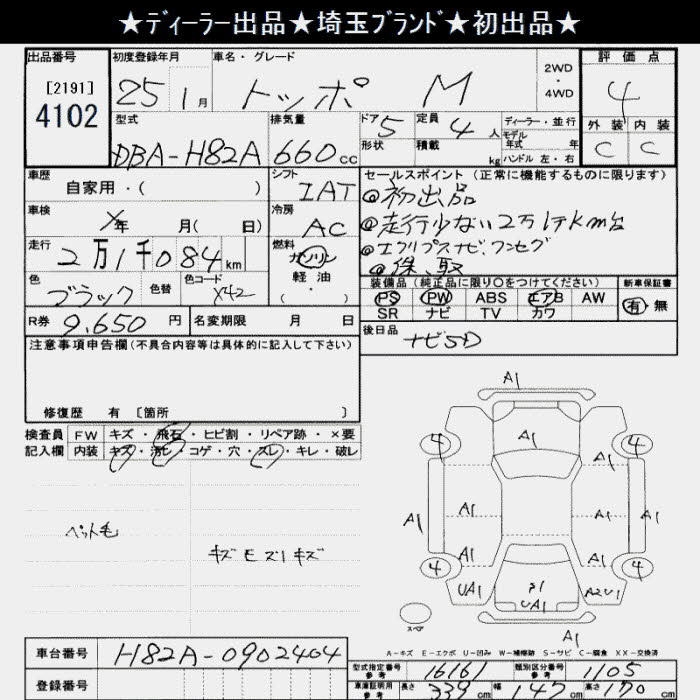 ★ディーラー出品★埼玉ブランド★初出品★
出品番号
[2191]
4102
初度登録年月
25 1月
車名・グレード
トッポ M
2WD
・
4WD
評価点
4
外装 内装
C C
型式
DBA-H82A
排気量
660cc
ドア 5
形状
定員
4人
積載 kg
ディーラー・並行
モデル
年式 年
ハンドル 左・右
車歴
自家用・( )
シフト
IAT
車検
年 月( 日)
冷房
AC
走行
2万1千084km
燃料
ガソリン
軽油
( ・ )
色
ブラック
色替
色コード
X42
R券 9.650円
名変期限 月 日
セールスポイント(正常に機能するものに限ります)
@初出品
@走行少ない2万1千km台
@エクリプスナビ、ワンセグ
@保、取
装備品(純正品に限り○をつけてください)
PS PW ABS エアB AW
SR ナビ TV カワ
新車保証書
有・無
後日品
ナビSD
注意事項申告欄(不具合内容等は具体的に記入して下さい)
修復歴 有 〔箇所 〕
検査員
記入欄
FW キズ・飛石・ヒビ割・リペア跡・×要
内装 キズ・汚レ・コゲ・穴・スレ・キレ・破レ
ペット毛
A1
4 A1 4
A1 A1 A1 A1
A1 A1
4 4
UA1 UA1 A2U1
スペア
A1
A-キズ E-エクボ U-凹み W-補修跡 S-サビ C-腐食 XX-交換済
車台番号 H82A-0902404
登録番号
型式指定番号
参考
16161
類別区分番号
参考
1105
車庫証明用
参考
長さ 339cm 幅 147cm 高さ cm